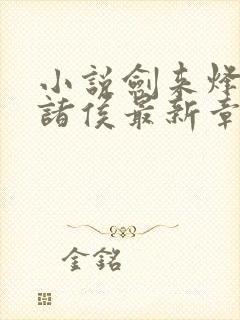 小説劍来烽
諸侯最新章
金銘